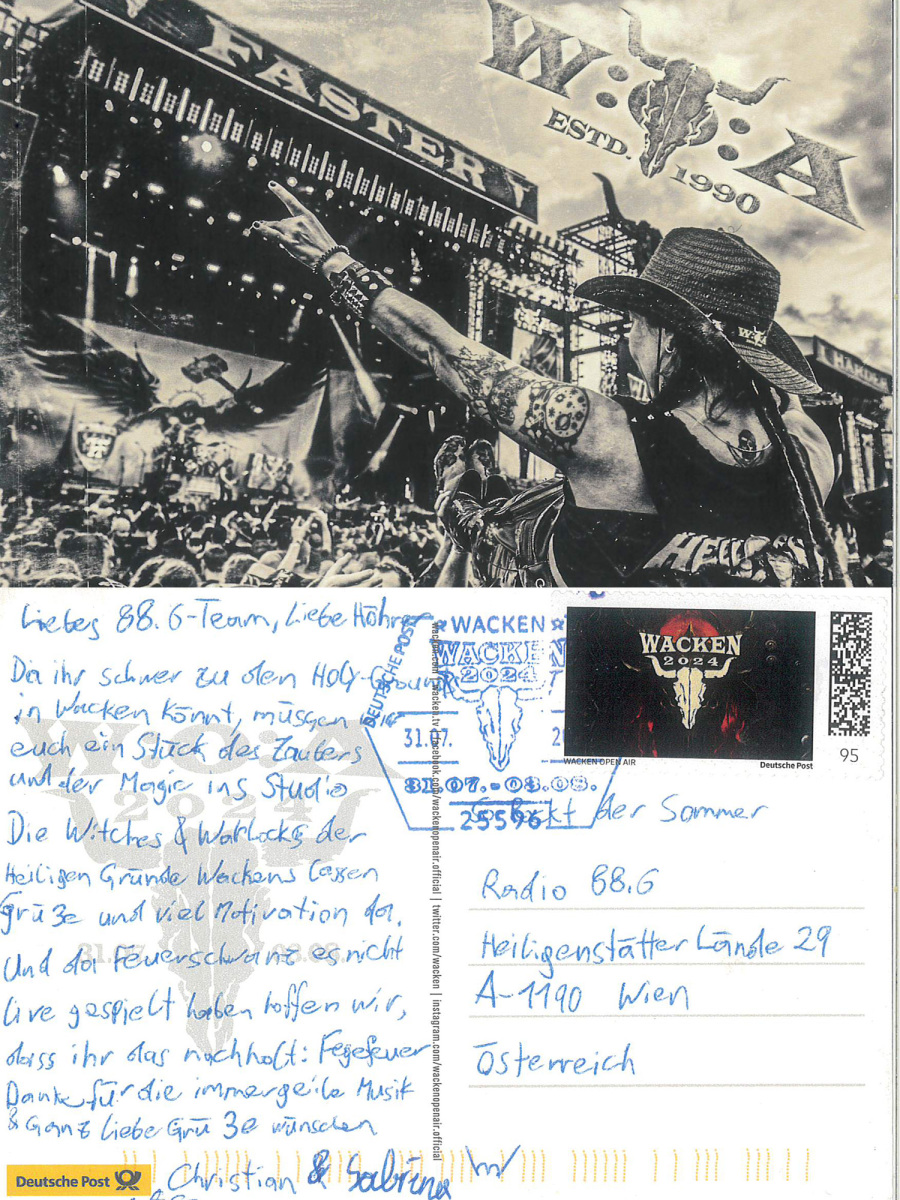 FASTER!
W:O:A
ESTD. 1990
HARDER
HELL
Liebes 88.6-Team, Liebe Höhrer
Da ihr schwer zu den HOLY-Ground
in Wacken könnt, müssen wir
euch ein Stück des Zaubers
und der Magic ins Studio
Die Witches & Warlocks der
Heiligen Gründe Wackens lassen
Grüße und viel Motivation da.
Und da Feuerschwanz es nicht
live gespielt haben hoffen wir,
dass ihr das nachholt: Fegefeuer
Danke für die immergeile Musik
& Ganz Liebe Grüße wünschen
Christian & Sabrina
W:O:A
2024
wacken.com | wacken.tv | facebook.com/wackenopenair.official | twitter.com/wacken | instagram.com/wackenopenair.official
DEUTSCHE POST
WACKEN
WACKEN
2024
31.07.
31.07.-03.08.
25596
WACKEN
2024
WACKEN OPEN AIR
Deutsche Post
95
der Sommer
Radio 88.6
Heiligenstätter Lände 29
A-1190 Wien
Österreich
Deutsche Post